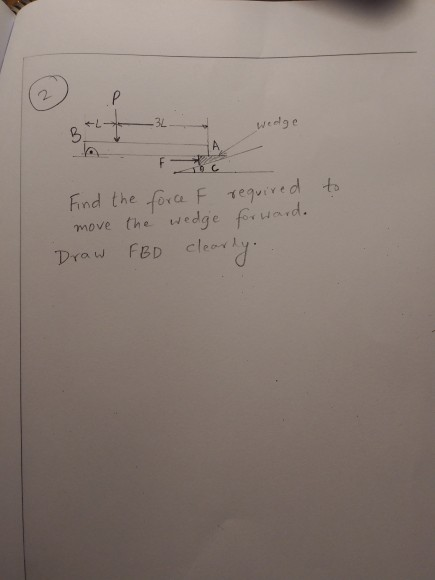 2
P
L
3L
wedge
B
A
F
θ
C
Find the force F required to
move the wedge forward.
Draw FBD clearly.